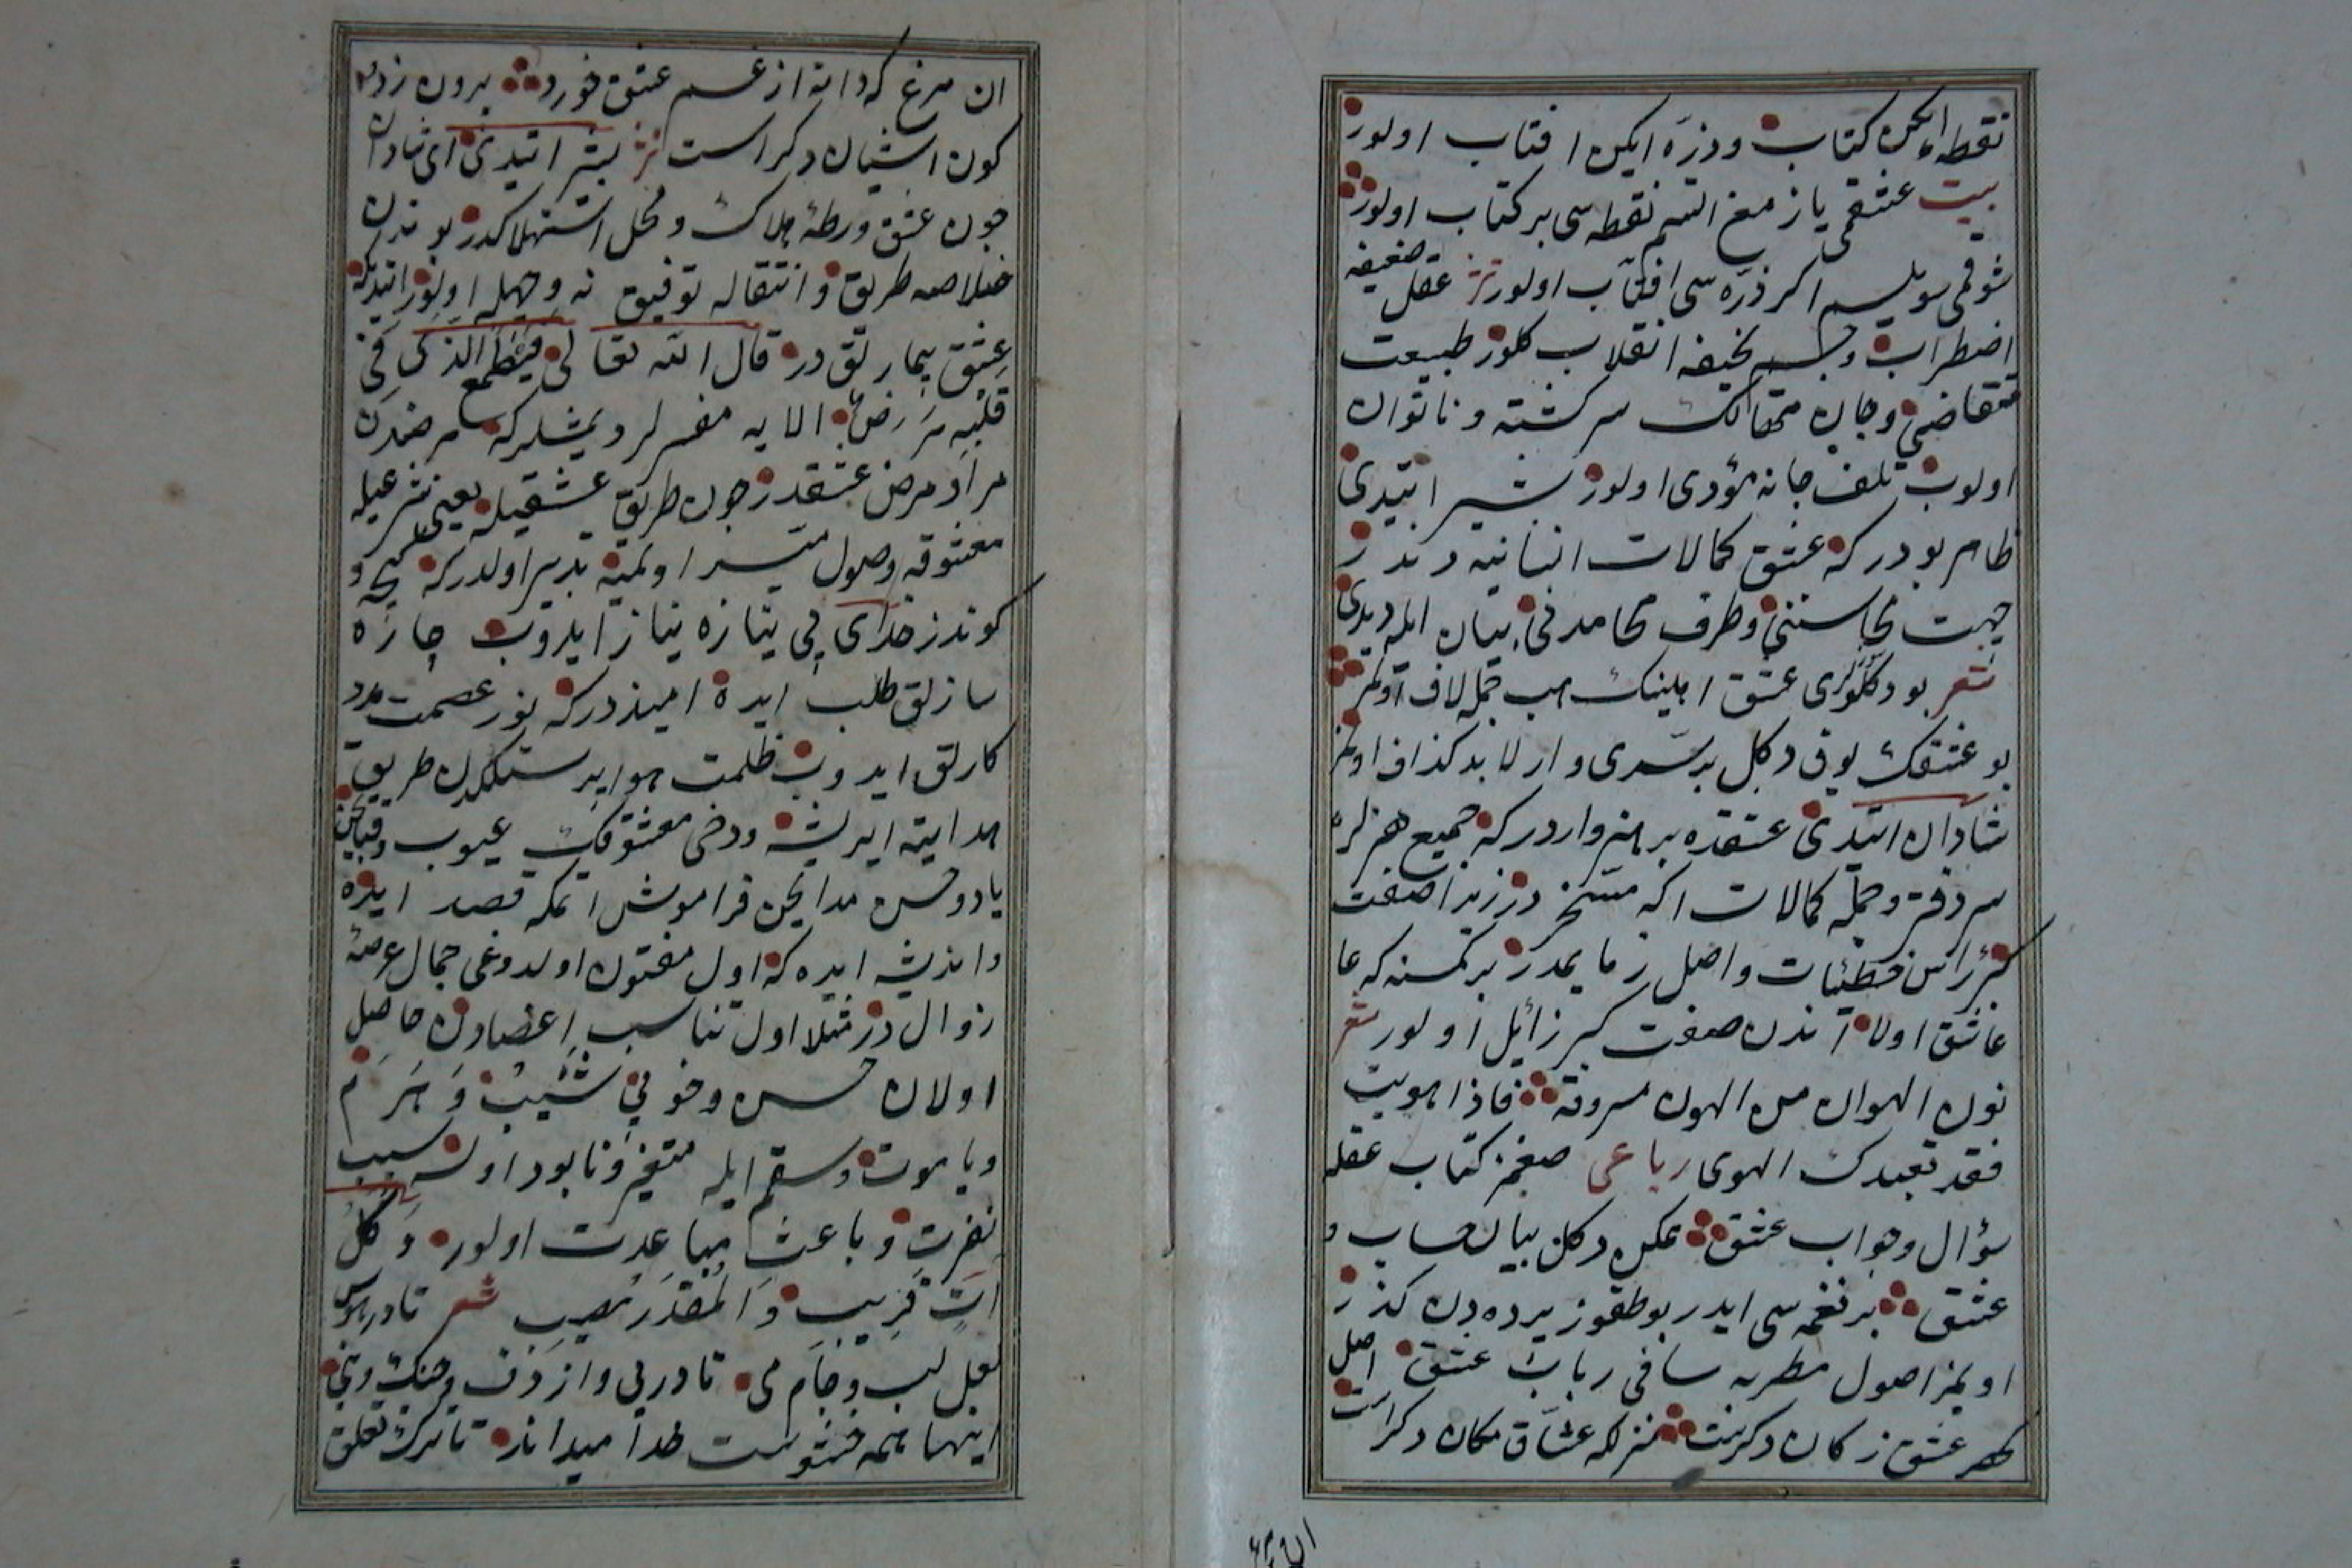 نقطه ایكن كتاب وذرّه ایكن افتاب اولور
بیت عشقمی یازمغ اتسم نقطه سی بر كتاب اولور
شوقمی سویلسم اكر ذرّه سی افتاب اولور نثر عقل ضعیفه
اضطراب وجسم نحیفه انقلاب كلور طبیعت
متقاضی وجان متهالك سركشته وناتوان
اولوب تلف جانه مؤدی اولور بشیر ایتدی
ظاهر بودر كه عشق كمالات انسانیه دندر
جهت محاسننی وطرف محامدنی بیان ایله دیدی
شعر بو دكلوری عشق اهلینك هب جمله لاف اولمز
بو عشقك یوق دكل بر سری وار لابد كذاف اولمز
شادان ایتدی عشقده بر هنر واردر كه جمیع هنرلره
سردفتر وجمله كمالات اكه مسخر در زیرا صفت
كبر راس خطیئات واصل زمایمدر بر كمسنه كه عا
عاشق اولا آندن صفت كبر زائل اولور شعر
نون الهوان من الهون مسروقة فاذا هویت
فقد تعبدك الهوی رباعی صغمز كتاب عقله
سؤال وجواب عشق ممكن دكل بیان حساب و
عشق بر نغمه سی ایدر بو طقوز پرده دن كذر
اویمز اصول مطربه ساقی رباب عشق اصل
كهر عشق زكان دكرست منزلكه عشاق مكان دكراست
ان مرغ
ان مرغ كه دانه از غم عشق خورد بیرون زدو
كون اشیان دكراست نثر بشر ایتدی ای شادان
چون عشق ورطۀ هلاك ومحل استهلاكدر بوندن
خلاصه طریق وانتقاله توفیق نه وجهله اولور ایتدیكه
عشق بیمارلق در قال الله تعالی فیطمع الذی فی
قلبه مرض الایه مفسرلر دیمشلر كه مرضدن
مراد مرض عشقدر چون طریق عشقیله یعنی شرعیله
معشوقه وصول میسر اولمیه تدبیر اولدر كه كیجه و
كوندز خدای بی نیازه نیاز ایدوب چاره
سازلق طلب ایده امیددر كه نور عصمت مدد
كارلق ایدوب ظلمت هوا پرستلكدن طریق
هدایته ایریشه ودخی معشوقك عیوب وقبایحن
یاد وحسن مدایحن فراموش اتمكه قصد ایده
واندیشه ایده كه اول مفتون اولدوغی جمال عرضۀ
زوال در مثلا اول تناسب اعضادن حاصل
اولان حسن وخوبی شیب وهرم
ویا موت وسقم ایله متغیر ونابود اولسه سبب
نفرت وباعث مباعدت اولور وكل
ات قریب والمقدر مصیب شعر تا در هوس
لعل لب وجام می تا در پی واز دف وچنك ونی
اینها همه حشوست خدا میداند تا ترك تعلق